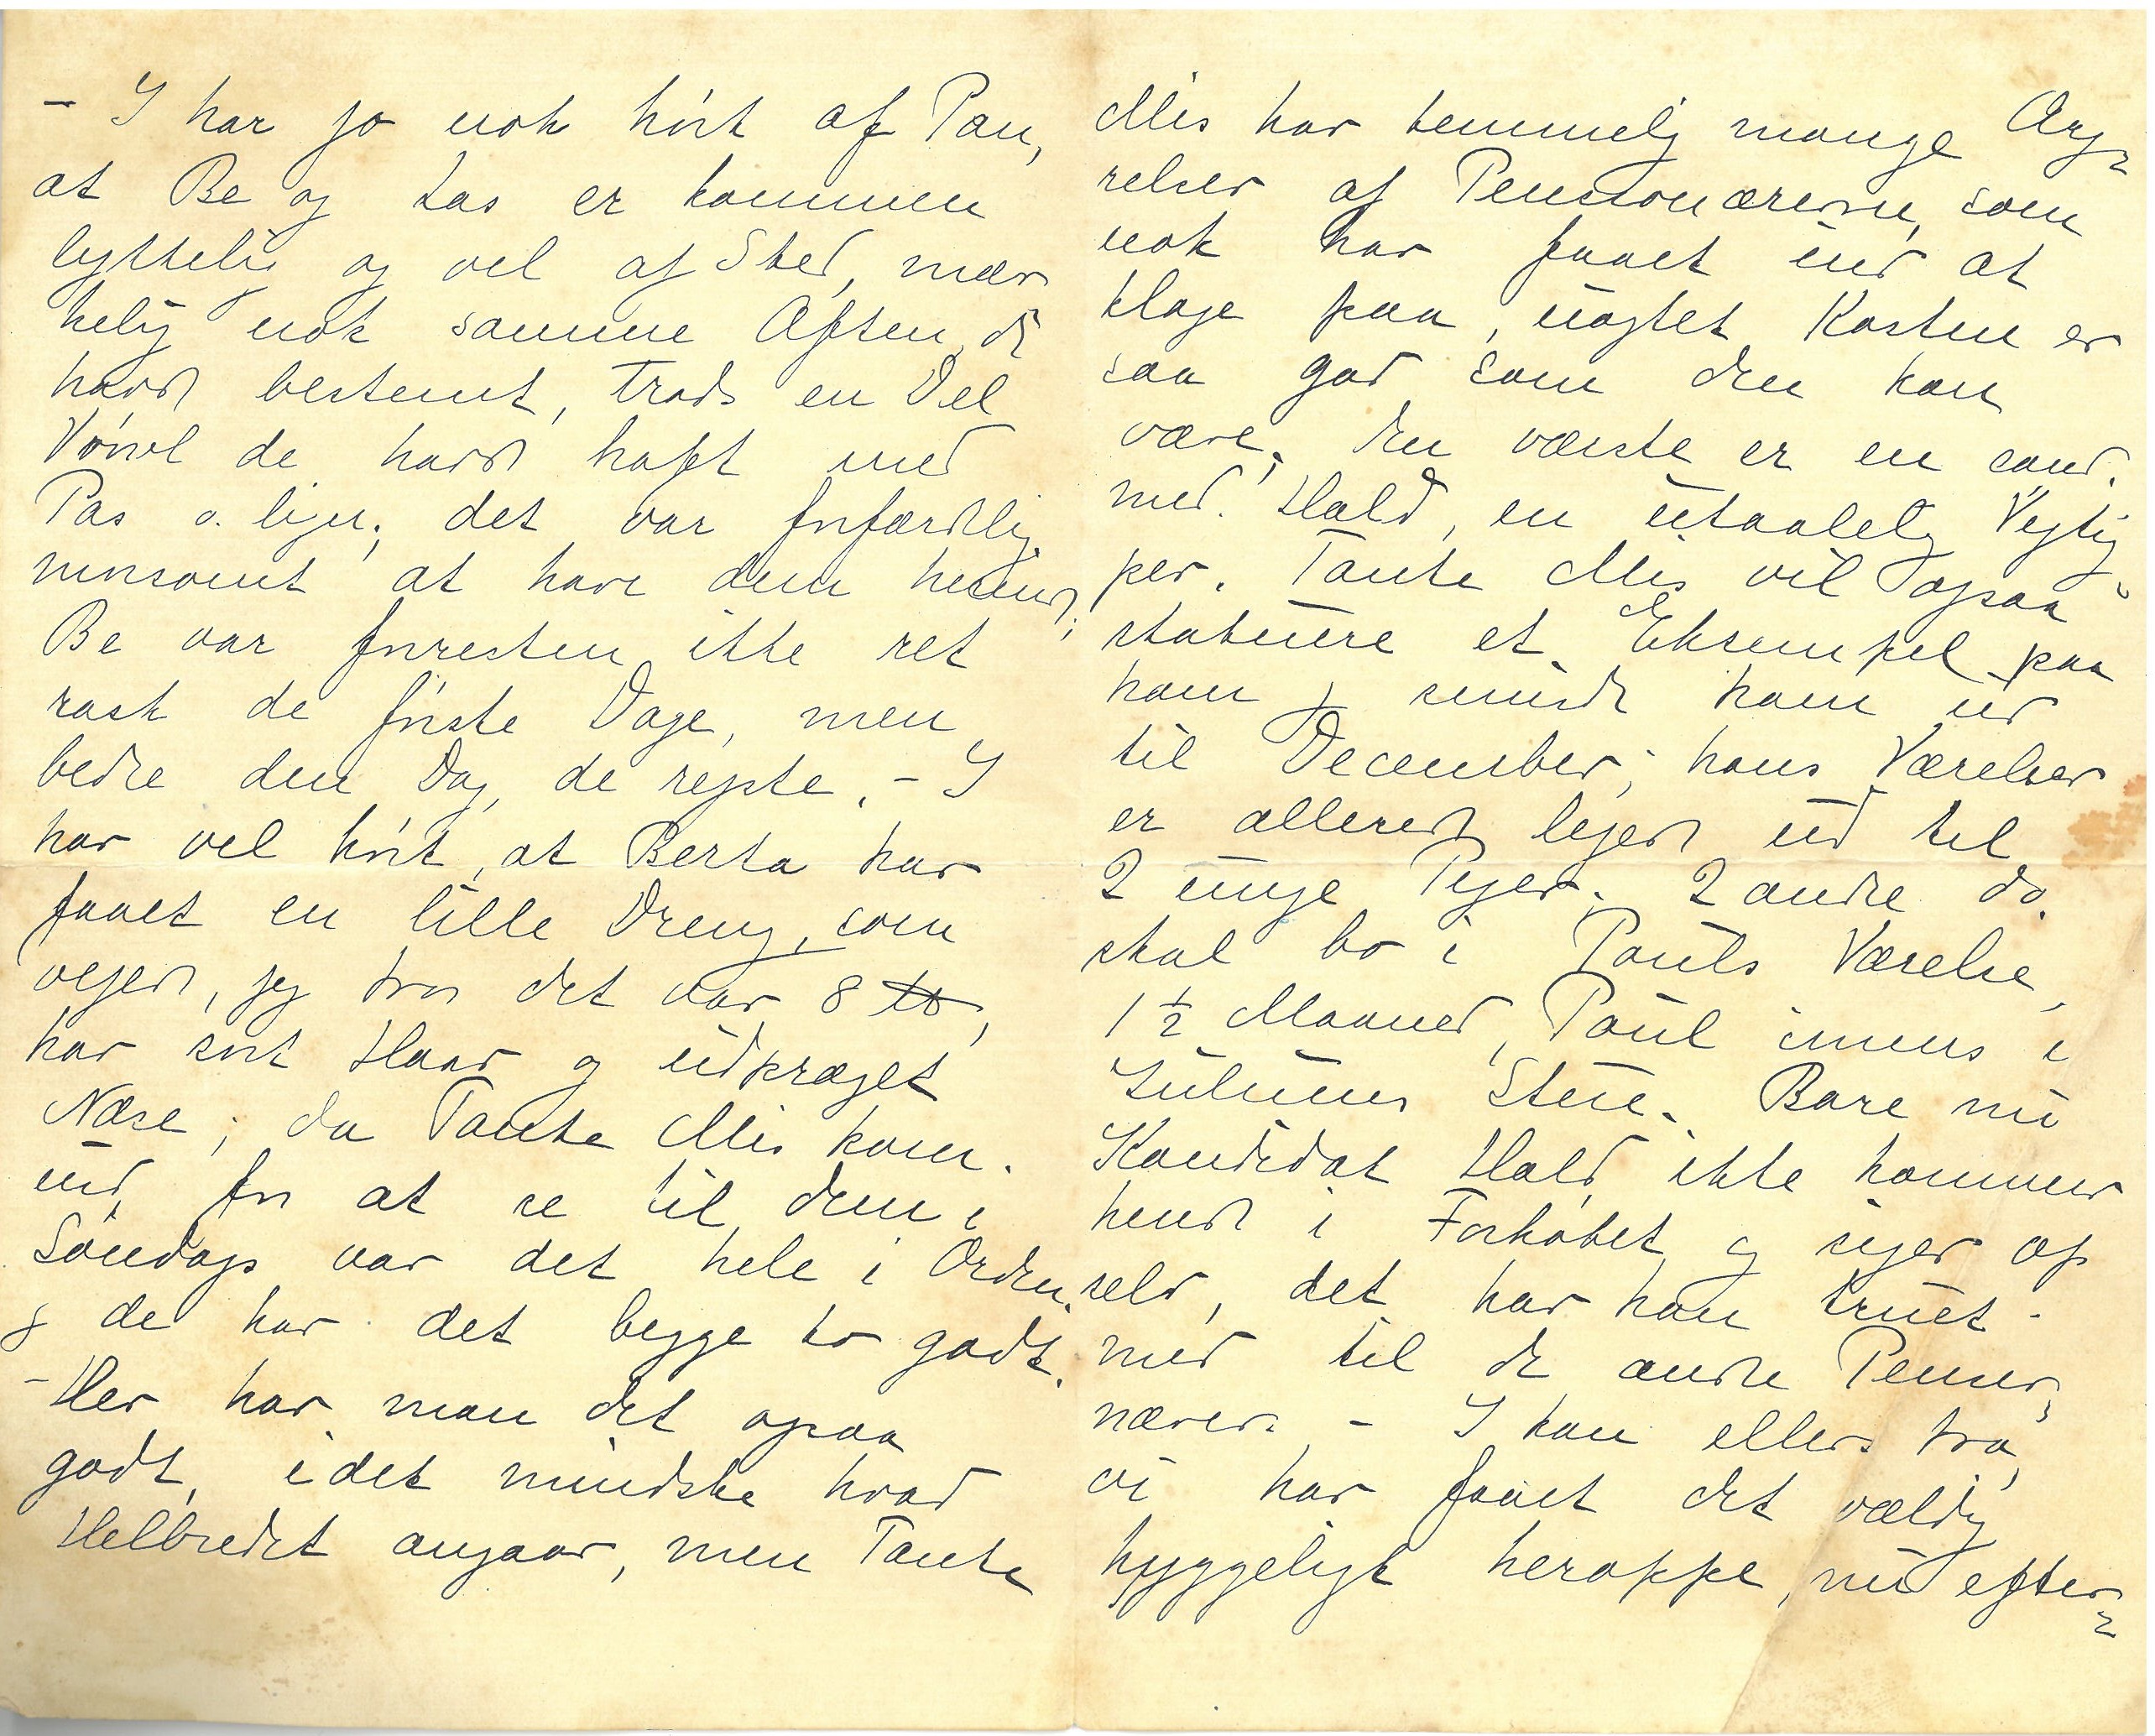 - I har jo nok hört af Pau,
at Be og Las er kommen
lykkelig og vel af Sted, mær
kelig nok samme Aften, de
havde bestemt, trods en Del
Vrøvl de havde haft med
Pas o. lign.; det var forfærdelig
morsomt at have dem herinde;
Be var forresten ikke ret
rask de første Dage, men
bedre den Dag, de rejste. - I
har vel hört, at Berta har
faaet en lille Dreng, som
vejede, jeg tror det var 8 ℔,
har sort Haar og udpræget
Næse; da Tante Mis kom
ud for at se til dem i
Søndags var det hele i Orden.
& de har det begge to godt.
- Her har man det ogsaa
godt, i det mindste hvad
Helbredet angaar, men Tante
Mis har temmelig mange Ærg=
relser af Pensionærerne, som
nok har faaet ind at
klage paa, uagtet Kosten er
saa god som den kan
være; den værste er en cand.
med. Hald, en utaalelig Vigtig=
per. Tante Mis vil ogsaa
statuere et Eksempel paa
ham og smide ham ud
til December; hans Værelser
er allerede lejede ud til
2 unge Piger. 2 andre do.
skal bo i Pauls Værelse,
1½ Maaned, Paul imens i
Julius Stue. Bare nu
Kandidat Hald ikke kommer
hende i Forkøbet og siger op
selv, det har han truet
med til de andre Pensio=
nærer. - I kan ellers tro,
vi har faaet det vældig
hyggeligt heroppe, nu efter=